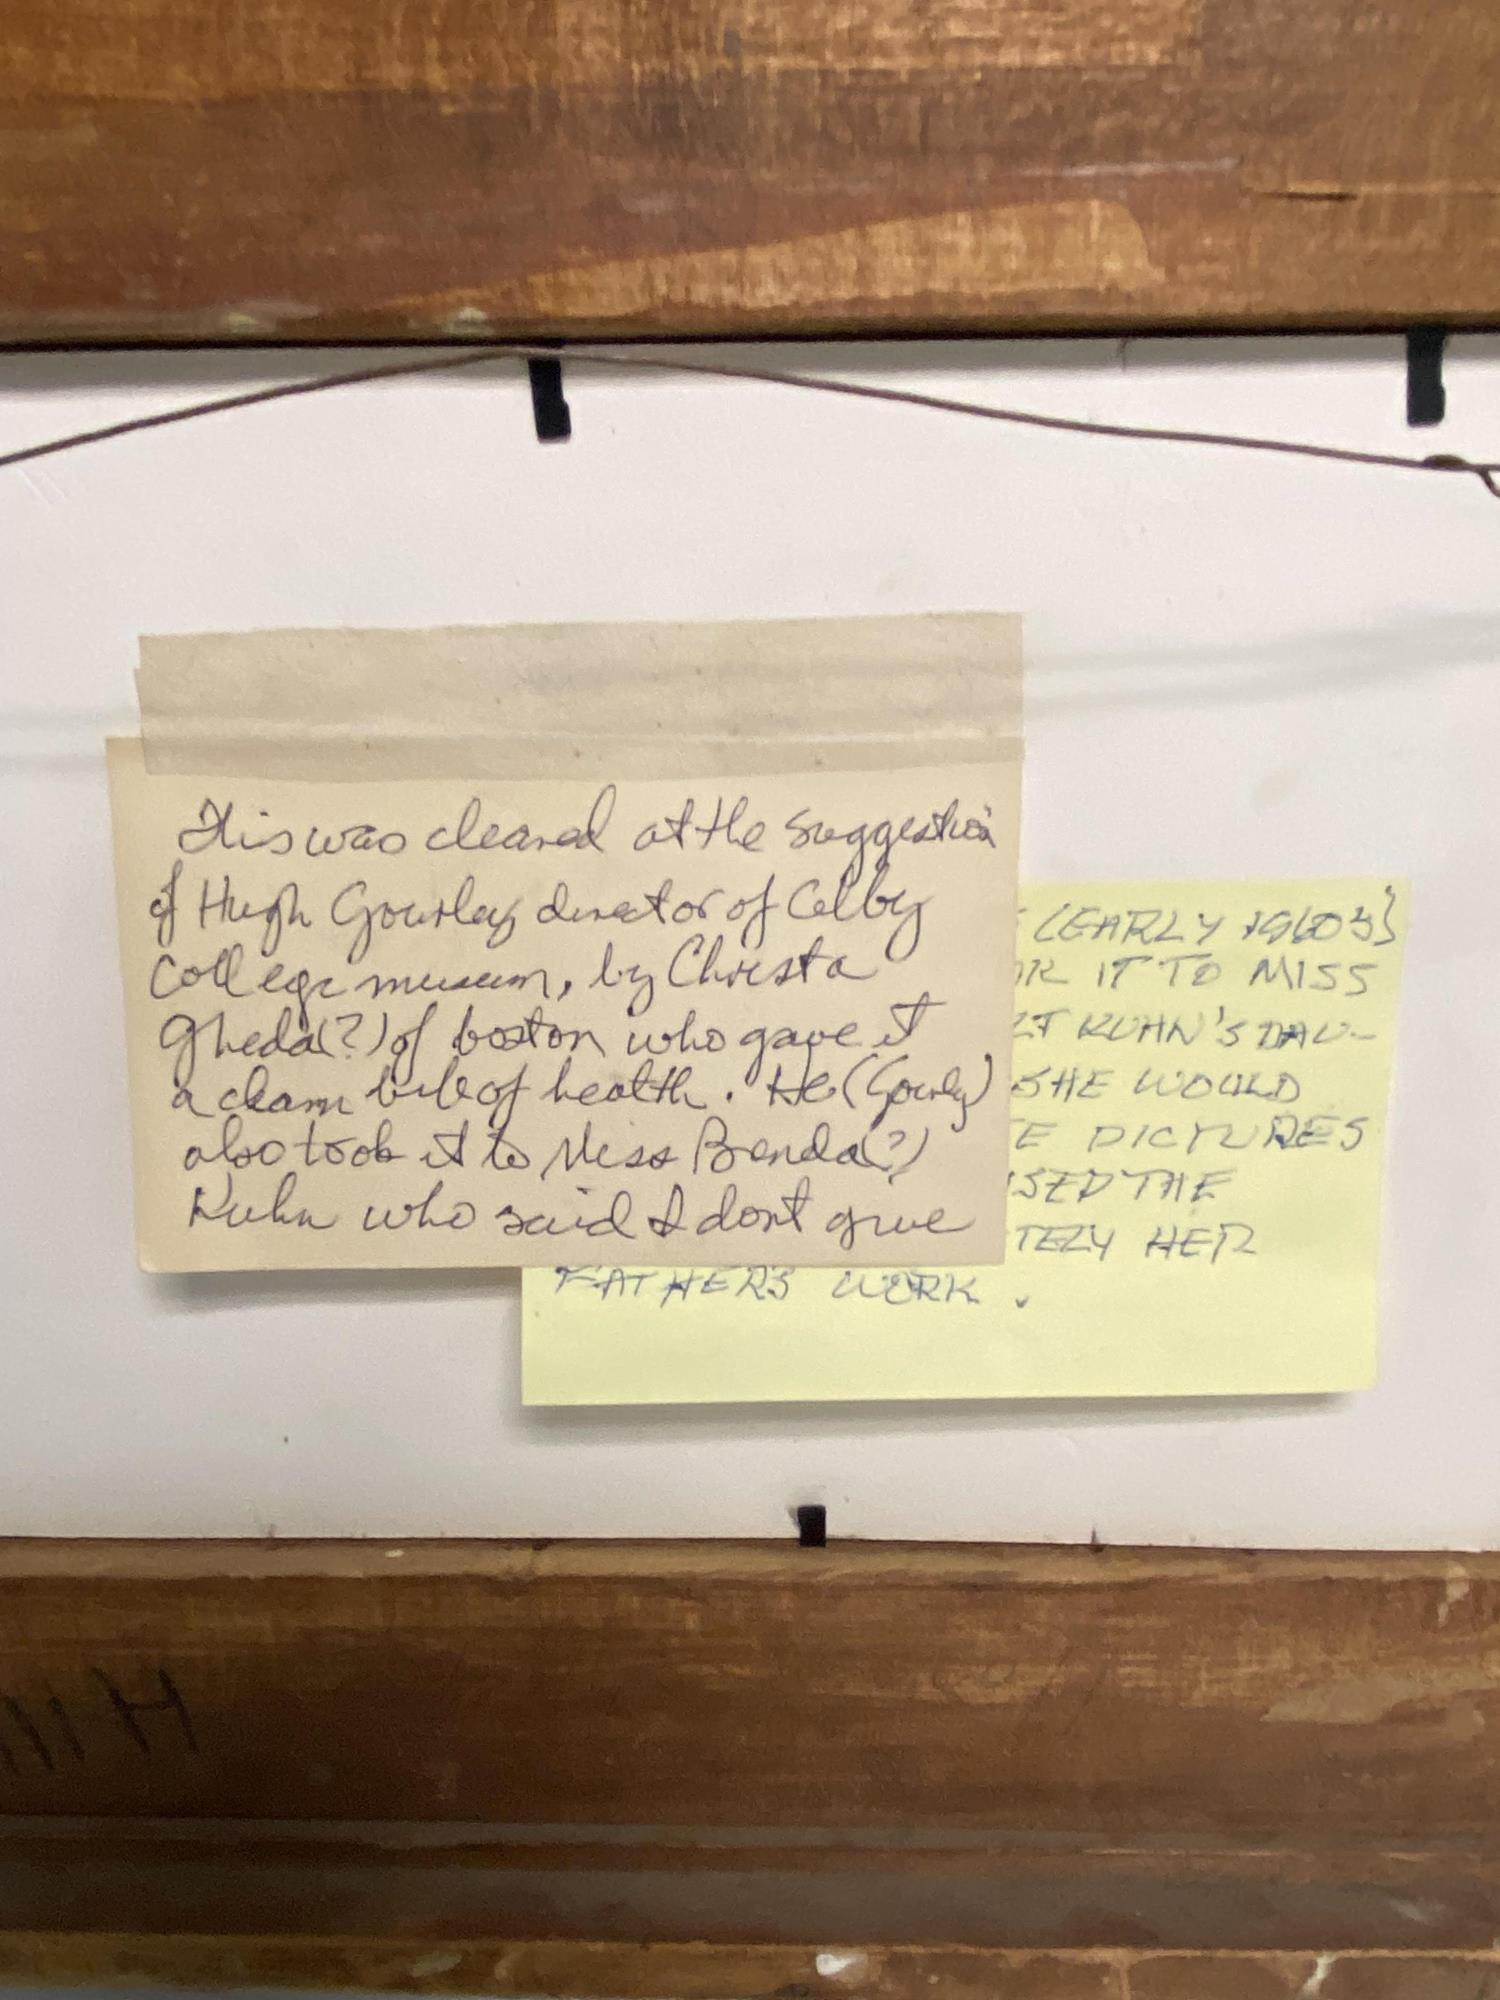 This was cleaned at the suggestion
of Hugh Gourley, director of Colby
College museum, by Christa
Gheda(?) of boston who gave it
a clean bill of health. He (Gourley)
also took it to Miss Brenda(?)
Kuhn who said I dont give
(EARLY 1960s)
IT TO MISS
KUHN'S DAU-
SHE WOULD
PICTURES
THE
HER
FATHERS WORK.